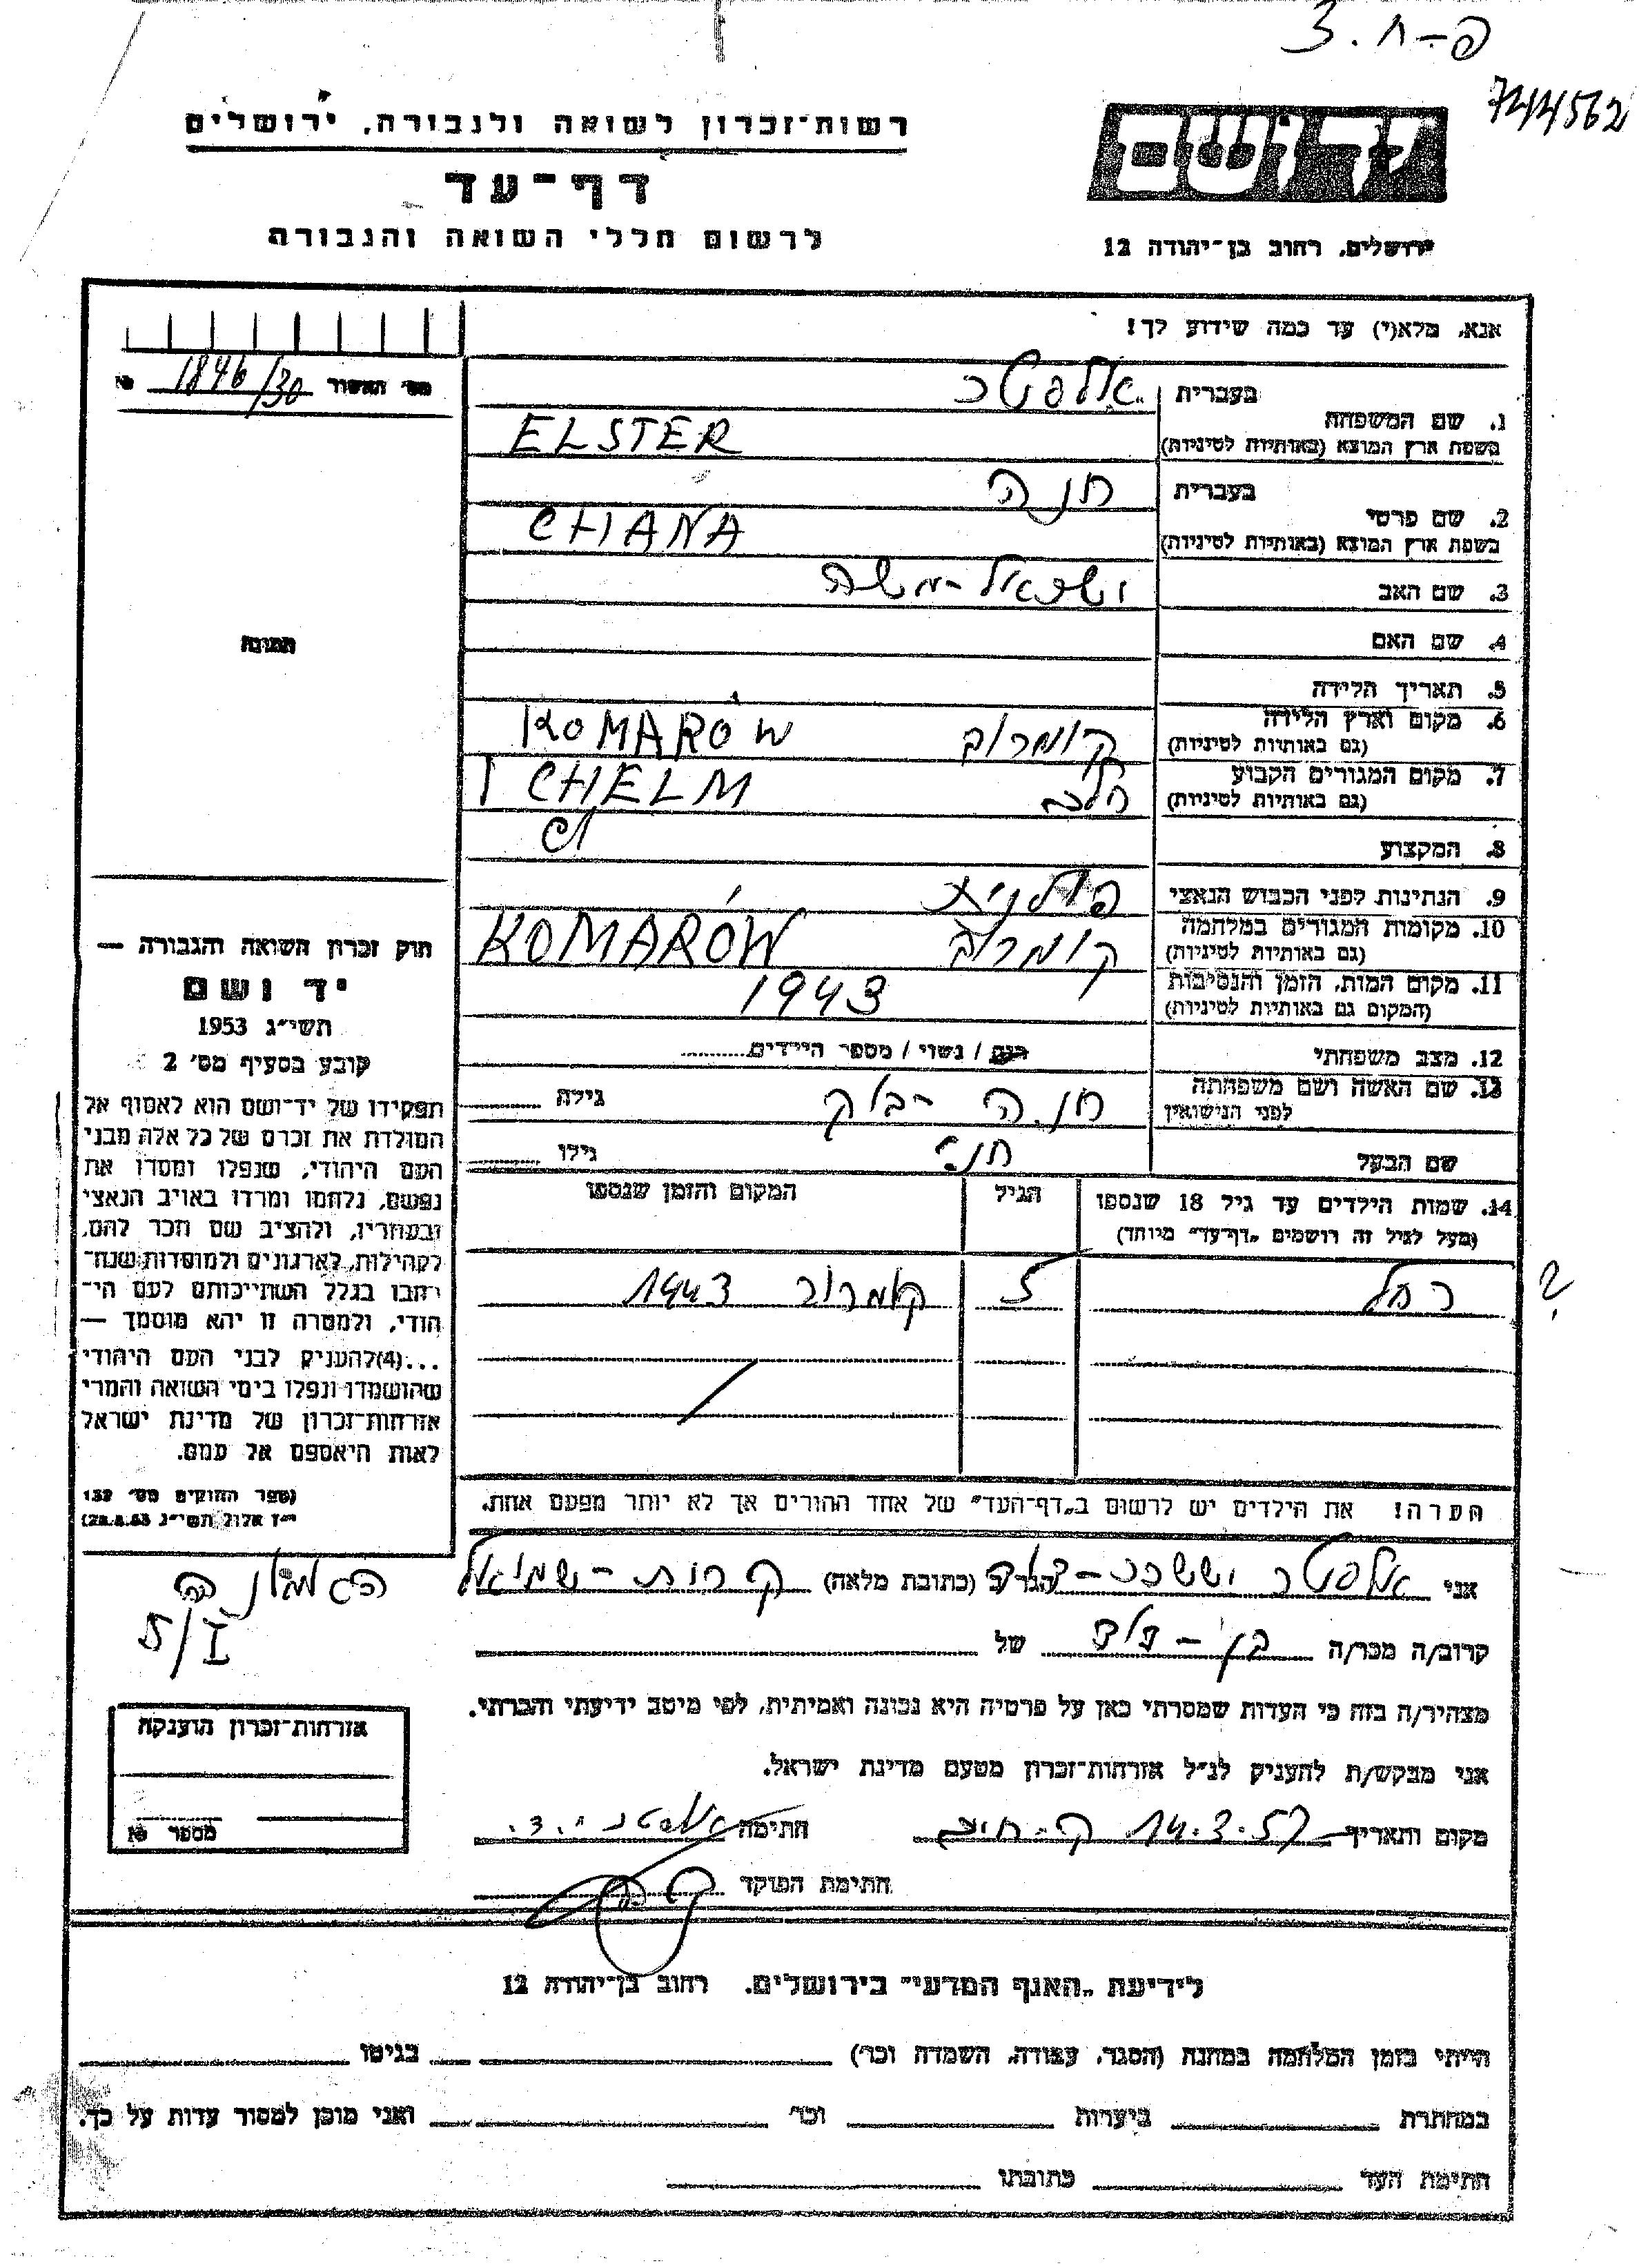 פ-ח. 3
7244562
רשות־זכרון לשואה ולגבורה, ירושלים
יד ושם
דף־עד
לרשום חללי השואה והגבורה
ירושלים, רחוב בן־יהודה 12
אנא, מלא(י) עד כמה שידוע לך!
מס׳ האשור 1846/30 №
בעברית אלסטר
1. שם המשפחה
בשפת ארץ המוצא (באותיות לטיניות) ELSTER
בעברית חנה
2. שם פרטי
בשפת ארץ המוצא (באותיות לטיניות) CHANA
3. שם האב ישראל-משה
4. שם האם
תמונה
5. תאריך הלידה
6. מקום וארץ הלידה קומרוב KOMARÓW
(גם באותיות לטיניות)
7. מקום המגורים הקבוע חלם CHELM
(גם באותיות לטיניות)
8. המקצוע
9. הנתינות לפני הכבוש הנאצי פולנית
10. מקומות המגורים במלחמה קומרוב KOMARÓW
(גם באותיות לטיניות)
11. מקום המות, הזמן והנסיבות 1943
(המקום גם באותיות לטיניות)
12. מצב משפחתי רווק / נשוי / מספר הילדים
13. שם האשה ושם משפחתה חנה גילה
לפני הנישואין
שם הבעל גילו
14. שמות הילדים עד גיל 18 שנספו הגיל המקום והזמן שנספו
(מעל לגיל זה רושמים „דף־עד״ מיוחד)
רחל 5 קומרוב 1943
?
חוק זכרון השואה והגבורה —
יד ושם
תשי״ג 1953
קובע בסעיף מס׳ 2
תפקידו של יד־ושם הוא לאסוף אל
המולדת את זכרם של כל אלה מבני
העם היהודי, שנפלו ומסרו את
נפשם, נלחמו ומרדו באויב הנאצי
ובעוזריו, ולהציב שם וזכר להם,
לקהילות, לארגונים ולמוסדות שנח־
רבו בגלל השתייכותם לעם הי־
הודי, ולמטרה זו יהא מוסמך —
...(4)להעניק לבני העם היהודי
שהושמדו ונפלו בימי השואה והמרי
אזרחות־זכרון של מדינת ישראל
לאות היאספם אל עמם.
(ספר החוקים מס׳ 132
י״ז אלול תשי״ג 28.8.53)
הערה! את הילדים יש לרשום ב„דף־העד״ של אחד ההורים אך לא יותר מפעם אחת.
אני אלסטר יששכר-דוב הגר ב (כתובת מלאה) קרית-שמואל
5/I
קרוב/ה מכר/ה בן-דוד של
מצהיר/ה בזה כי העדות שמסרתי כאן על פרטיה היא נכונה ואמיתית, לפי מיטב ידיעתי והכרתי.
אני מבקש/ת להעניק לנ״ל אזרחות־זכרון מטעם מדינת ישראל.
מקום ותאריך ק. חיים 14.3.57 חתימה אלסטר י.ד.
חתימת הפוקד
אזרחות־זכרון הוענקה
מספר №
לידיעת „האגף המדעי״ בירושלים, רחוב בן־יהודה 12
הייתי בזמן המלחמה במחנה (הסגר, עבודה, השמדה וכו׳) בגיטו
במחתרת ביערות וכו׳ ואני מוכן למסור עדות על כך.
חתימת העד כתובתו